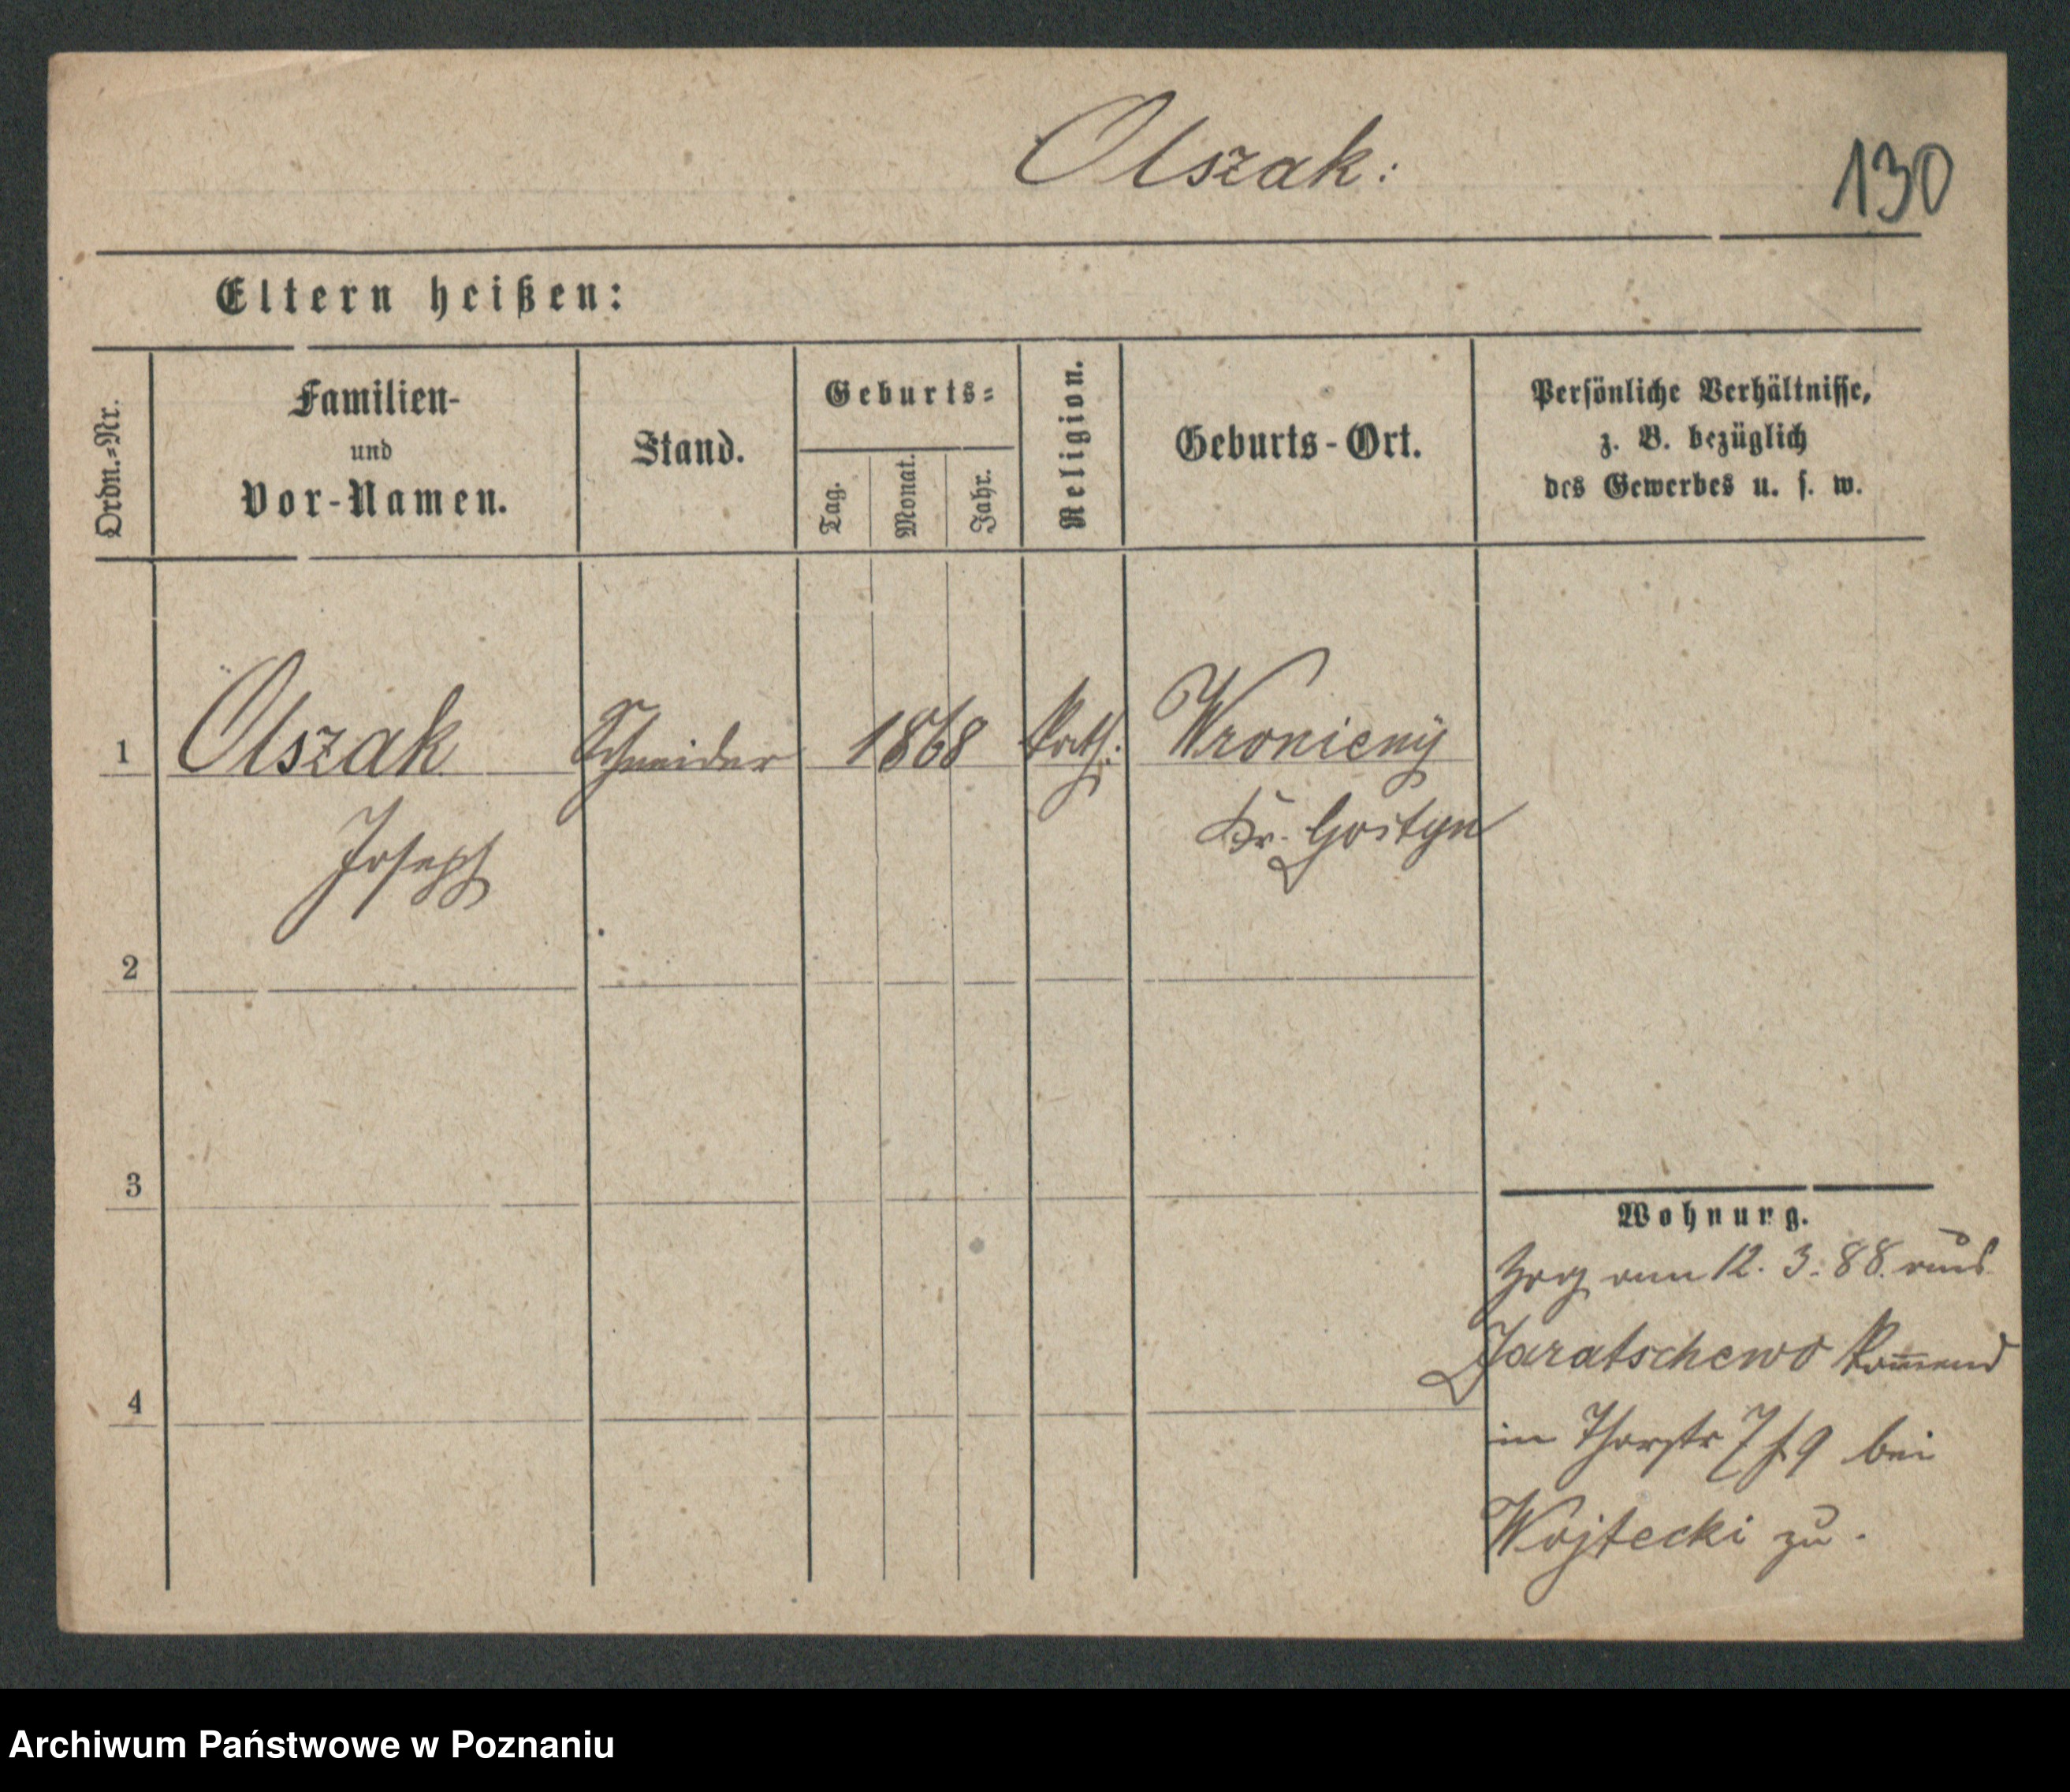 Olszak:
130
Eltern heißen:
Ordn.=Nr.
Familien-
und
Vor-Namen.
Stand.
Geburts=
Tag.
Monat.
Jahr.
Religion.
Geburts-Ort.
Persönliche Verhältnisse,
z. B. bezüglich
des Gewerbes u. s. w.
1 Olszak Schneider 1868 kath. Wronieny
Joseph Kr. Gostyn
2
3
4
Wohnung.
Zog am 12. 3. 88. aus
Jaratschewo kom̅end
in Thorstr 9 bei
Wojtecki zu.
Archiwum Państwowe w Poznaniu